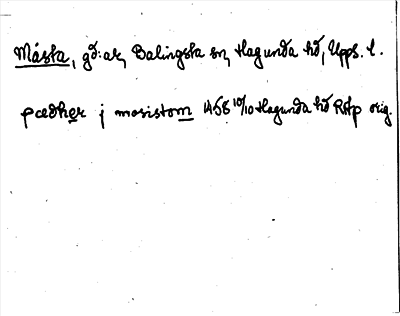 Måsta, gd:ar, Balingsta sn, Hagunda hd, Upps. l.
pædher j mosistom 1458 10/10 Hagunda hd RAp orig.